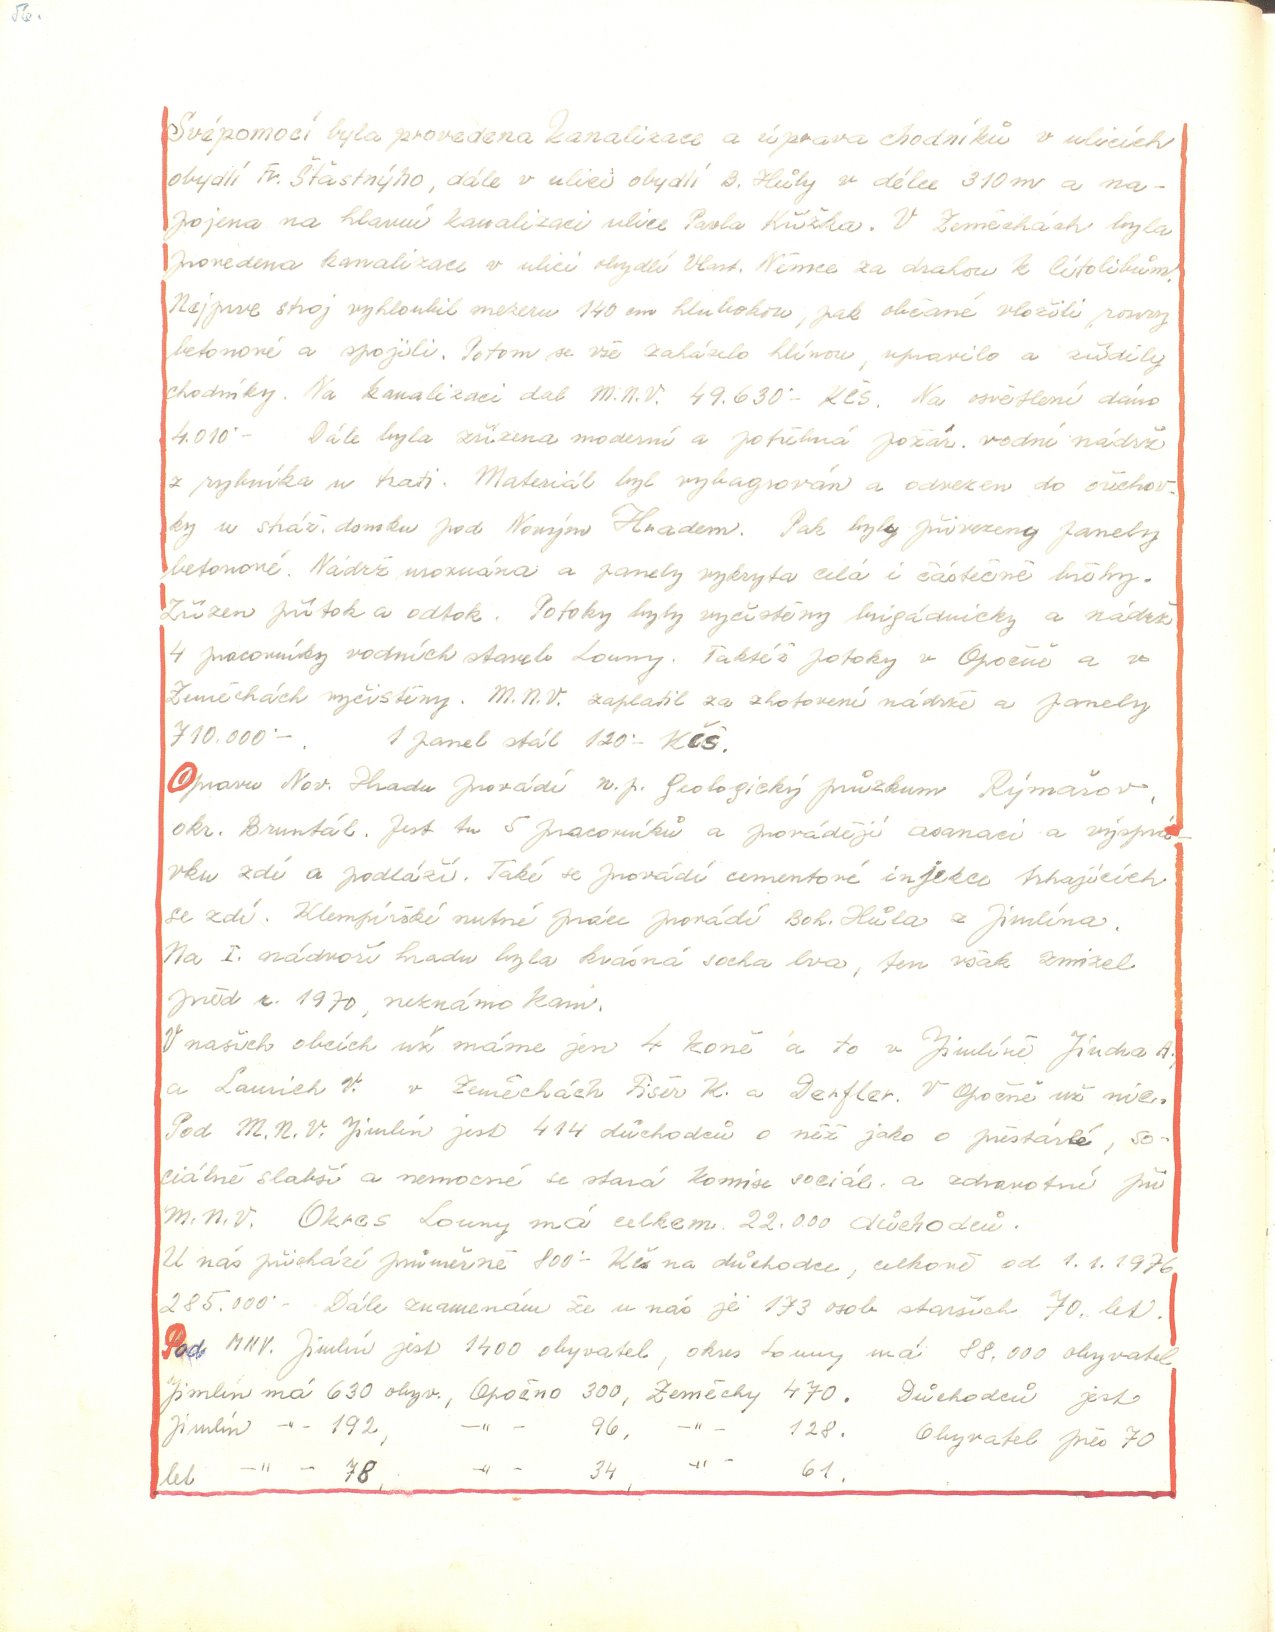 56.
Svépomocí byla provedena kanalizace a úprava chodníků v ulicích
obydlí Fr. Šťastnýho, dále v ulici obydlí B. Hůly v délce 310 m a na-
pojena na hlavní kanalizaci ulice Pavla Křížka. V Zeměchách byla
provedena kanalizace v ulici obydlí Vlast. Němce za drahou k Lítolibům.
Nejprve stroj vyhloubil mezeru 140 cm hlubokou, pak občané vložili roury
betonové a spojili. Potom se vše zaházelo hlínou, upravilo a zřídily
chodníky. Na kanalizaci dal M.N.V. 49.630·- Kčs. Na osvětlení dáno
4.010·- Dále byla zřízena moderní a potřebná požár. vodní nádrž
z rybníka u trati. Materiál byl vybagrován a odvezen do ořechov-
ky u stráž. domku pod Novým Hradem. Pak byly přivezeny panely
betonové. Nádrž urovnána a panely vykryta celá i částečně břehy.
Zřízen přítok a odtok. Potoky byly vyčistěny brigádnicky a nádrž
4 pracovníky vodních staveb Louny. Taktéž potoky v Opočně a v
Zeměchách vyčistěny. M.N.V. zaplatil za zhotovení nádrže a panely
710.000·-. 1 panel stál 120·- Kčs.
Opravu Nov. Hradu provádí n.p. Geologický průzkum Rýmařov,
okr. Bruntál. Jest tu 5 pracovníků a provádějí asanaci a výsprá-
vku zdí a podláží. Také se provádí cementové injekce trhajících
se zdí. Klempířské nutné práce provádí Boh. Hůla z Jimlína.
Na I. nádvoří hradu byla krásná socha lva, ten však zmizel
před r. 1970, neznámo kam.
V našich obcích už máme jen 4 koně a to v Jimlíně Jindra A.,
a Laurich V. v Zeměchách Fišer K. a Derfler. V Opočně už nic.
Pod M.N.V. Jimlín jest 414 důchodců o něž jako o přestárlé, so-
ciálně slabší a nemocné se stará komise sociál. a zdravotní při
M.N.V. Okres Louny má celkem 22.000 důchodců.
U nás přichází průměrně 800·- Kčs na důchodce, celkově od 1.1.1976
285.000·- Dále znamenám že u nás je 173 osob starších 70. let.
Pod MNV. Jimlín jest 1400 obyvatel, okres Louny má 88.000 obyvatel
Jimlín má 630 obyv., Opočno 300, Zeměchy 470. Důchodců jest
Jimlín -"- 192, -"- 96, -"- 128. Obyvatel přes 70
let -"- 78, -"- 34, -"- 61.